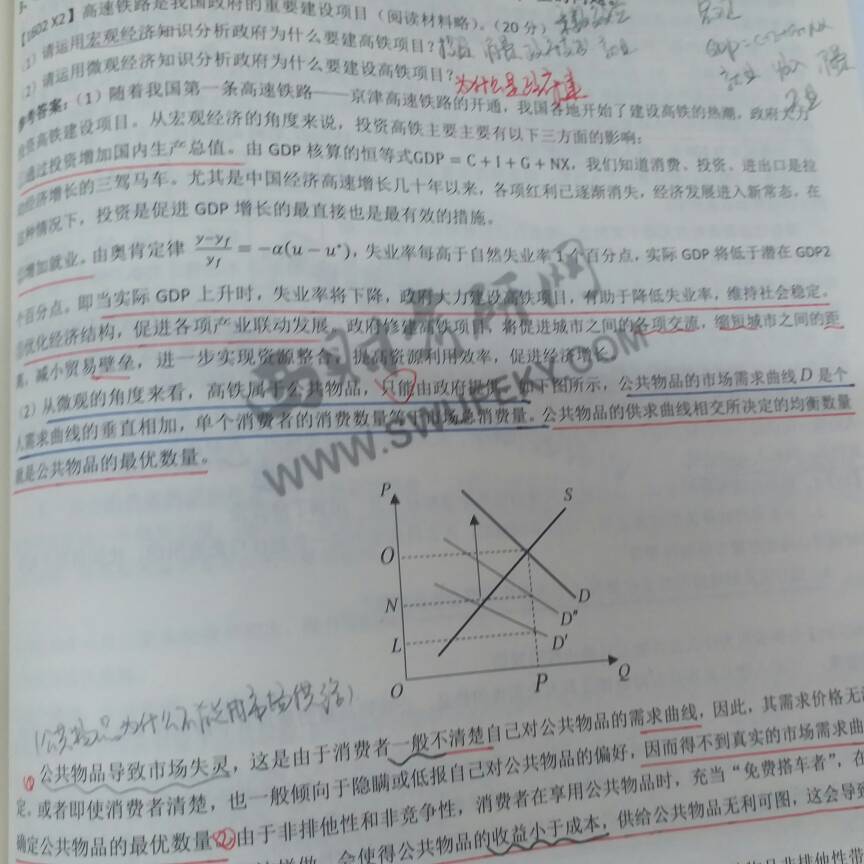 【1602 X2】高速铁路是我国政府的重要建设项目（阅读材料略）。（20分）
（1）请运用宏观经济知识分析政府为什么要建高铁项目？
（2）请运用微观经济知识分析政府为什么要建设高铁项目？为什么是政府建
参考答案：（1）随着我国第一条高速铁路——京津高速铁路的开通，我国各地开始了建设高铁的热潮，政府大力
投资高铁建设项目。从宏观经济的角度来说，投资高铁主要主要有以下三方面的影响：
通过投资增加国内生产总值。由 GDP 核算的恒等式GDP = C + I + G + NX，我们知道消费、投资、进出口是拉
动经济增长的三驾马车。尤其是中国经济高速增长几十年以来，各项红利已逐渐消失，经济发展进入新常态。在
这种情况下，投资是促进 GDP 增长的最直接也是最有效的措施。
增加就业。由奥肯定律 y−y_f / y_f = −α(u − u*)，失业率每高于自然失业率 1 个百分点，实际 GDP 将低于潜在 GDP2
个百分点。即当实际 GDP 上升时，失业率将下降，政府大力建设高铁项目，有助于降低失业率，维持社会稳定。
优化经济结构，促进各项产业联动发展。政府修建高铁项目，将促进城市之间的各项交流，缩短城市之间的距
离，减小贸易壁垒，进一步实现资源整合，提高资源利用效率，促进经济增长。
（2）从微观的角度来看，高铁属于公共物品，只能由政府提供。如下图所示，公共物品的市场需求曲线 D 是个
人需求曲线的垂直相加，单个消费者的消费数量等于市场总消费量。公共物品的供求曲线相交所决定的均衡数量
就是公共物品的最优数量。
WWW.SWUFEKY.COM
P
S
O
N
D
D"
L
D'
O
P
Q
（公共物品为什么不能用市场供给）
① 公共物品导致市场失灵，这是由于消费者一般不清楚自己对公共物品的需求曲线，因此，其需求价格无法
定，或者即使消费者清楚，也一般倾向于隐瞒或低报自己对公共物品的偏好，因而得不到真实的市场需求曲
确定公共物品的最优数量。②由于非排他性和非竞争性，消费者在享用公共物品时，充当“免费搭车者”，在
会使得公共物品的收益小于成本，供给公共物品无利可图，这会导致